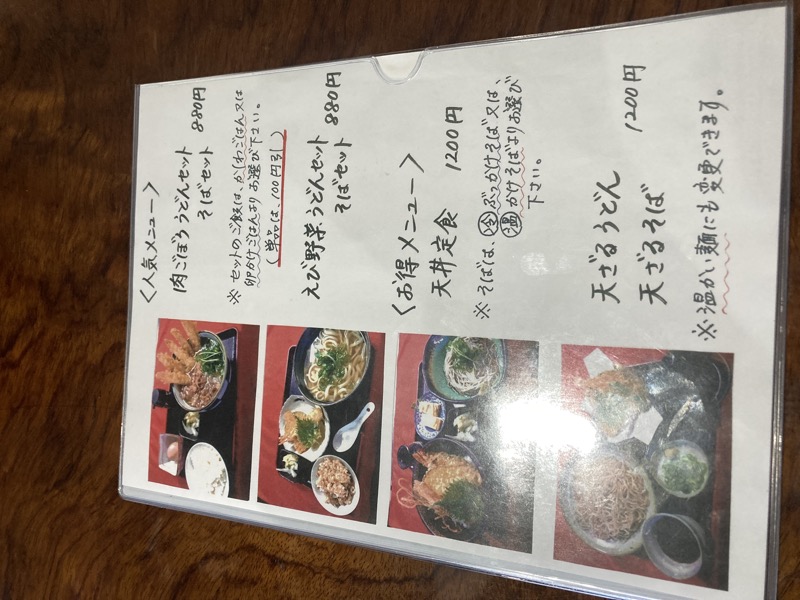 〈人気メニュー〉
肉ごぼううどんセット 880円
そばセット
※ セットのご飯は、かしわごはん又は
卵かけごはんよりお選び下さい。
(単品は100円引)
えび野菜うどんセット 880円
そばセット
〈お得メニュー〉
天丼定食 1200円
※ そばは、冷ぶっかけそば又は、
温かけそばよりお選び
下さい。
天ざるうどん 1200円
天ざるそば
※温かい麺にも変更できます。